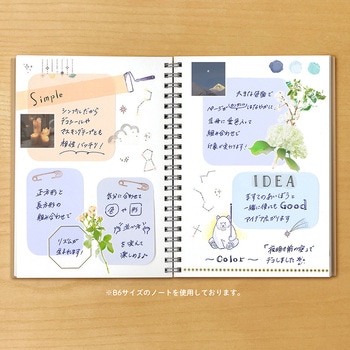 Simple
シンプルだから
デコシールや
マスキングテープとも
相性バッチリ!
正方形と
長方形の
組み合わせで
リズムが
生まれます!
気分に合わせて
色や形
を変えて
楽しめるよ♪
大きな図柄で
ページが
はなやかに。
豆身に
組み合わせで
印象が変わります!
IDEA
ますてのあいぼう と
一緒に使っても Good
アイデア広がります
〜Color〜
「夜明け前の空」で
デコしました
※B6サイズのノートを使用しております。